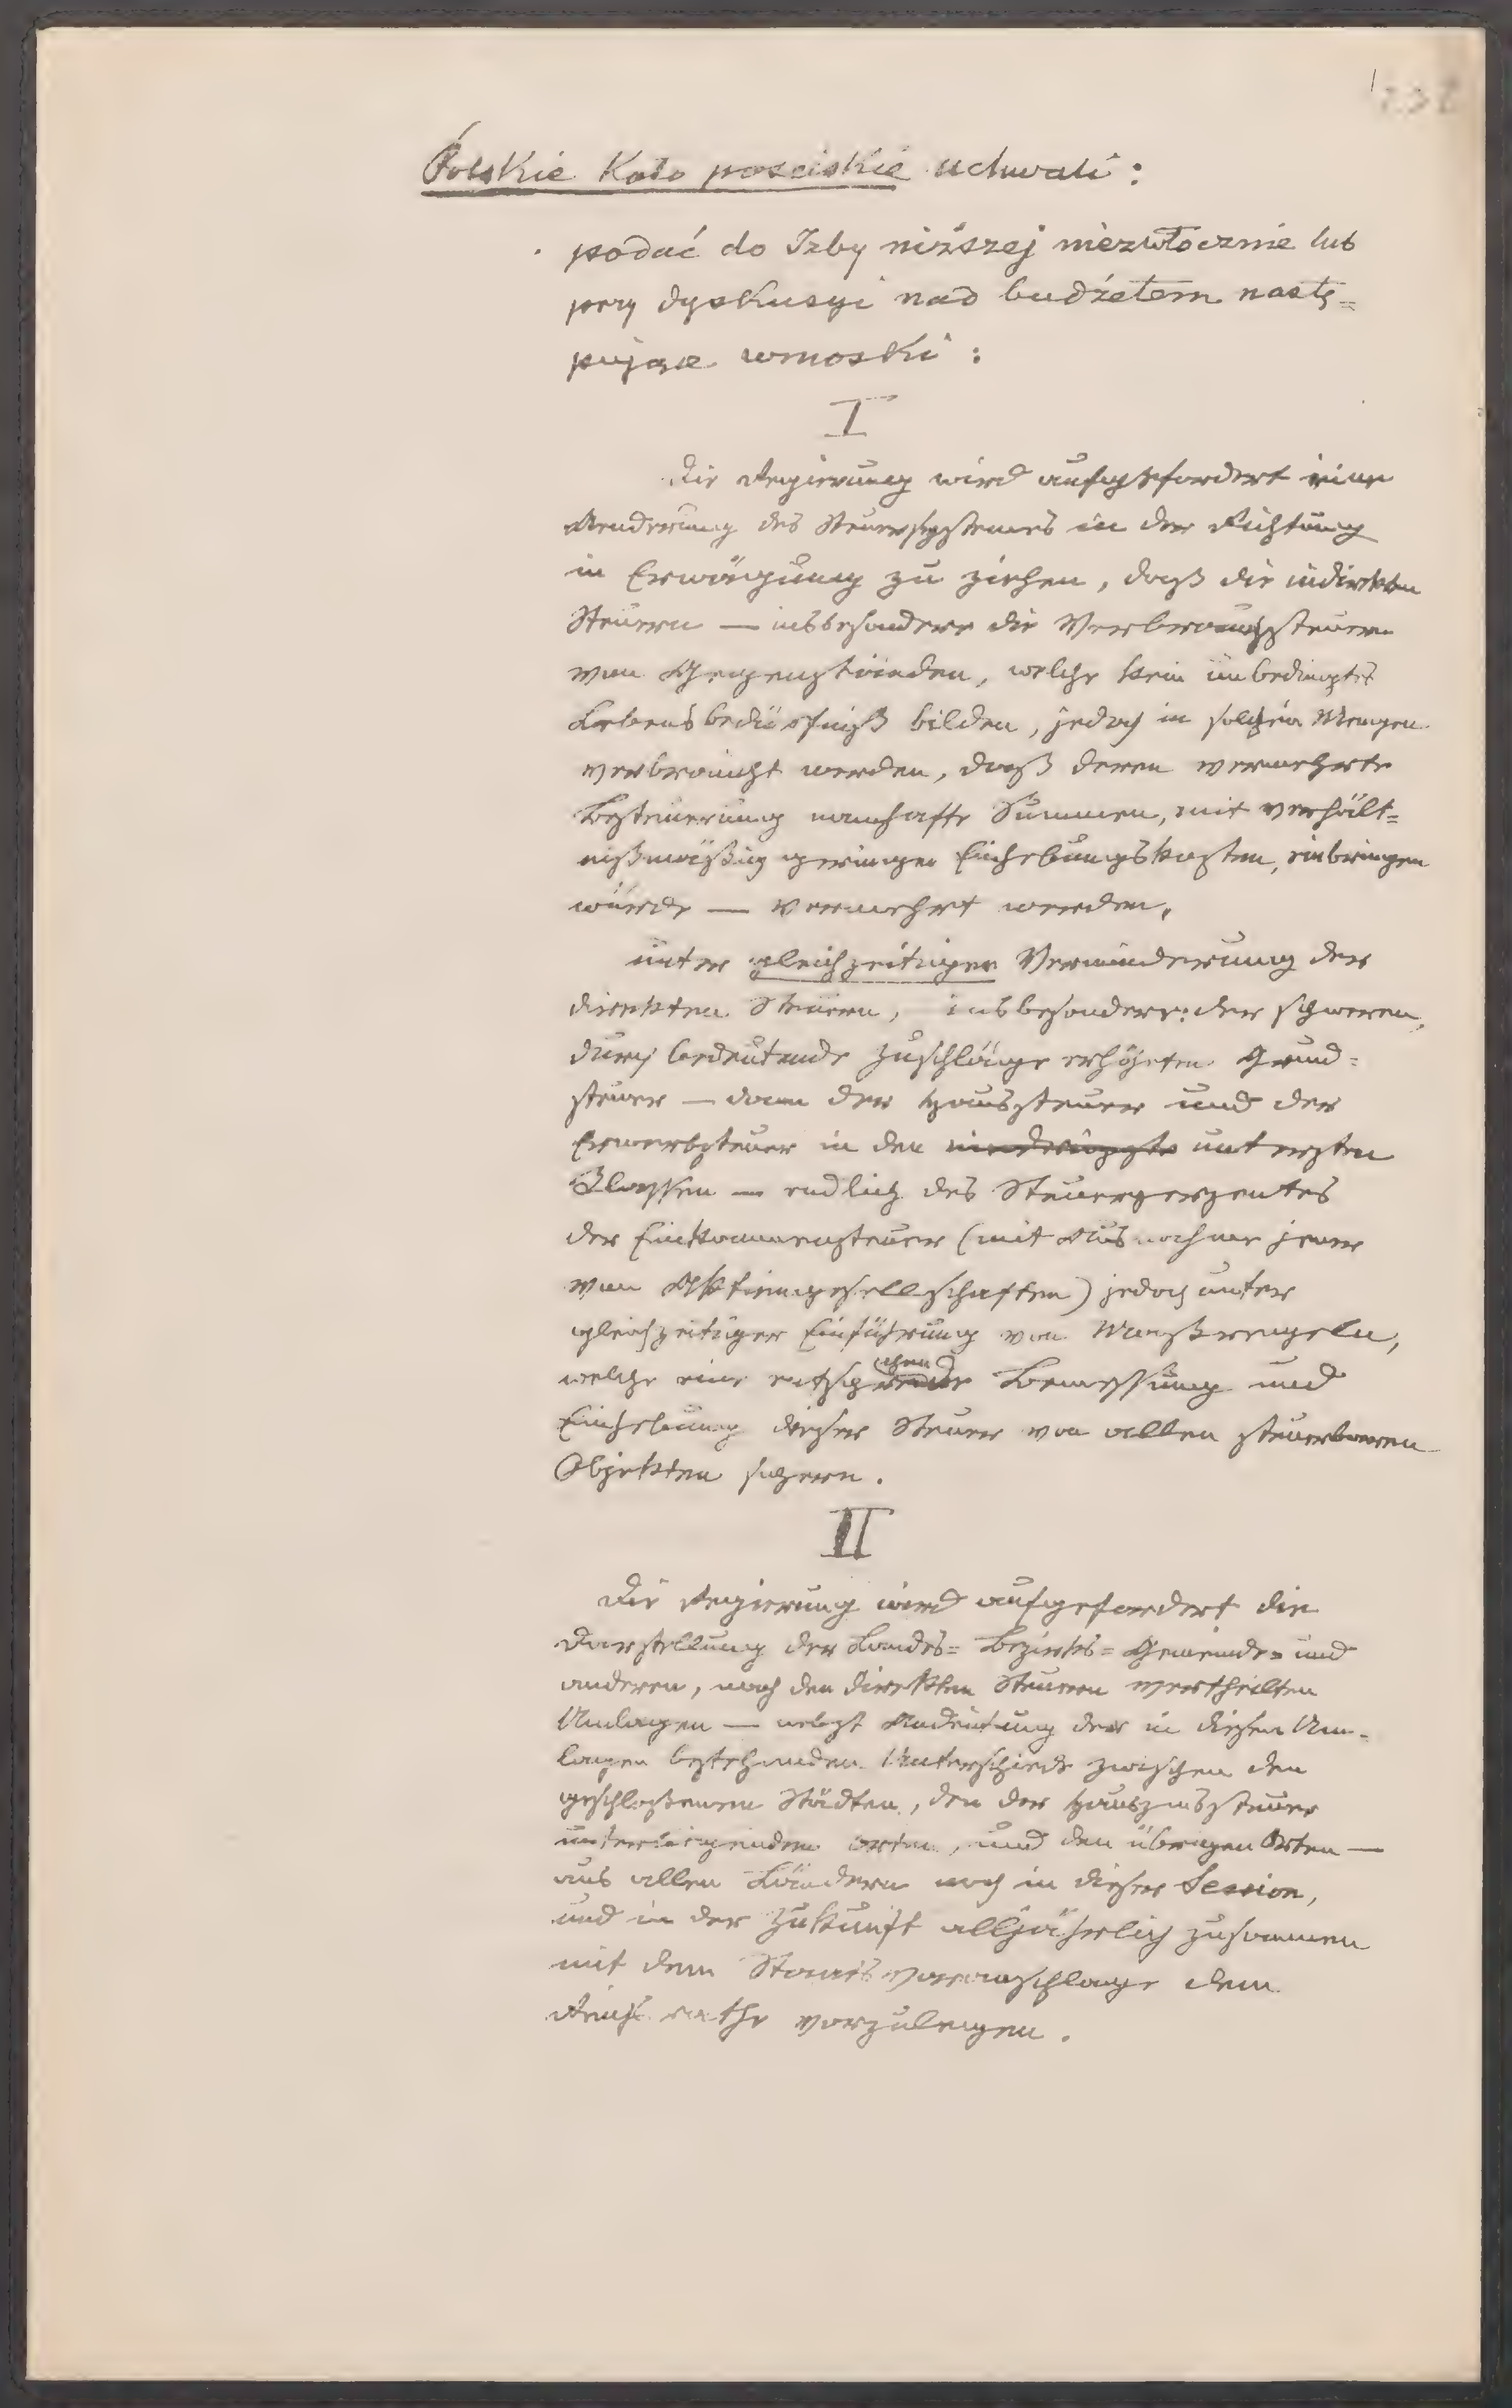 Polskie Koło poselskie uchwali:
podać do Izby niższej niezwłocznie lub
przy dyskusyi nad budżetem nastę=
pujące wnioski:
I
Die Regierung wird aufgefordert eine
Aenderung des Steuersystemes in der Richtung
in Erwägung zu ziehen, daß die indirekten
Steuern — insbesondere die Verbrauchssteuern
von Gegenständen, welche kein unbedingtes
Lebensbedürfniß bilden, jedoch in solchen Mengen
verbraucht werden, daß deren vermehrte
Besteuerung namhafte Summen, mit verhält=
nißmäßig geringen Einhebungskosten, einbringen
würde — vermehrt werden,
unter gleichzeitiger Verminderung der
direkten Steuern, insbesondere: der schweren,
durch bedeutende Zuschläge erhöhten Grund=
steuer — dann der Haussteuer und der
Erwerbsteuer in den untersten
Klassen — endlich des Steuerperzentes
der Einkommensteuer (mit Ausnahme jener
von Aktiengesellschaften) jedoch unter
gleichzeitiger Einführung von Maaßregeln,
welche eine Bemessung und
Einhebung dieser Steuer von allen steuerbaren
Objekten sichern.
II
Die Regierung wird aufgefordert die
Darstellung der Landes= Bezirks= Gemeinde= und
anderen, nach den direkten Steuern vertheilten
Umlagen — nebst Andeutung der in diesen Um=
lagen bestehenden Unterschiede zwischen den
geschloßenen Städten, den der Hauszinssteuer
unterliegenden Orten, und den übrigen Orten —
aus allen Ländern noch in dieser Session,
und in der Zukunft alljährlich zusammen
mit dem Staatsvoranschlage dem
Reichsrathe vorzulegen.